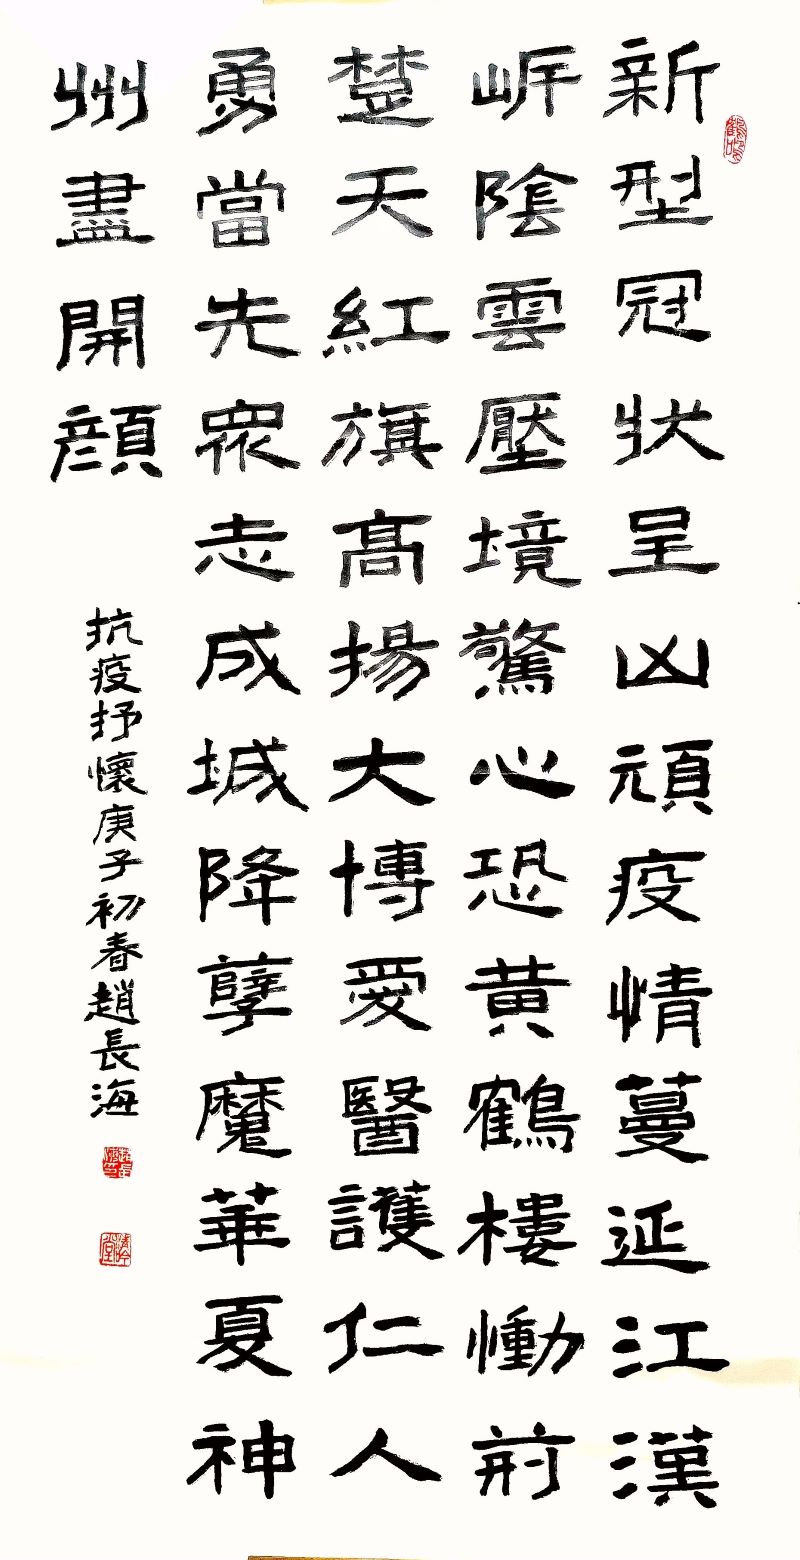 鶴鳴
新型冠狀呈凶頑疫情蔓延江漢
岸陰雲壓境驚心恐黃鶴樓慟荊
楚天紅旗高揚大博愛醫護仁人
勇當先眾志成城降孽魔華夏神
州盡開顏
抗疫抒懷庚子初春趙長海